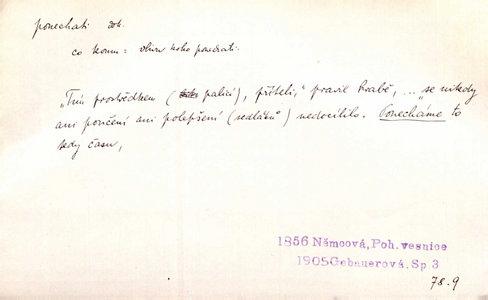 ponechati dok.
„co komu = 
„Tím prostředkem (palicí), příteli,“ pravil hrabě, ... „se nikdy
ani poučení ani polepšení (sedláků) nedocílilo. Ponecháme to
tedy času,
1856 Němcová, Poh. vesnice
1905 Gebauerová. Sp 3
78.9